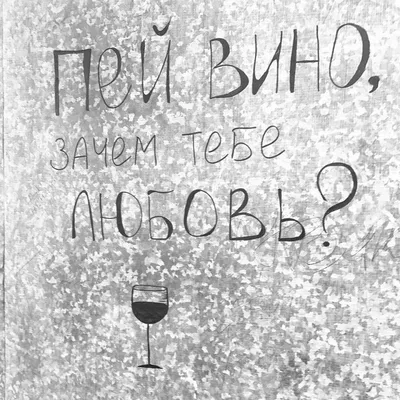 ПЕЙ ВИНО,
ЗАЧЕМ ТЕБЕ
ЛЮБОВЬ?